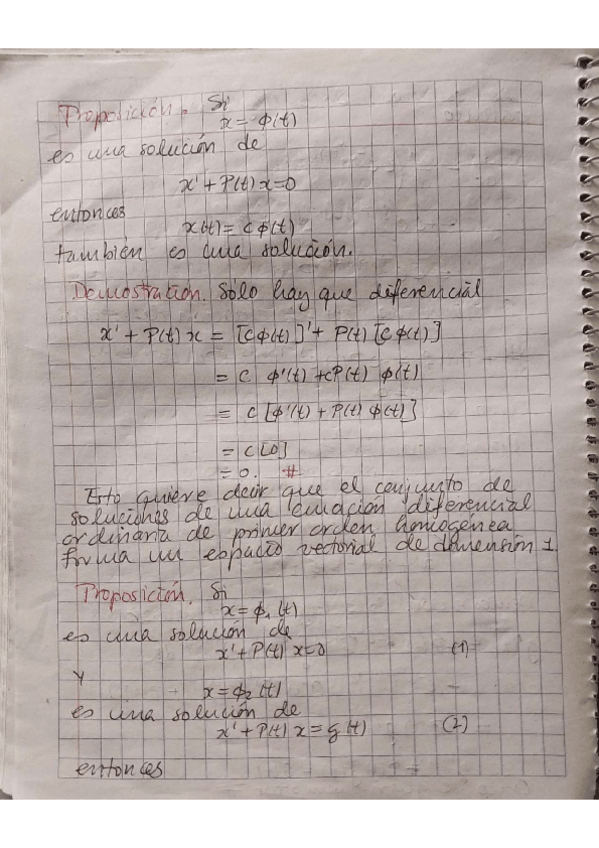 Proposición. Si
x = ϕ(t)
es una solución de
x' + P(t) x = 0
entonces
x(t) = c ϕ(t)
también es una solución.
Demostration. Solo hay que diferencial
x' + P(t) x = [c ϕ(t)]' + P(t) [c ϕ(t)]
= c ϕ'(t) + cP(t) ϕ(t)
= c [ϕ'(t) + P(t) ϕ(t)]
= c[0]
= 0. #
Esto quiere decir que el conjunto de
soluciones de una ecuación diferencial
ordinaria de primer orden homogénea
forma un espacio vectorial de dimensión 1.
Proposición. Si
x = ϕ₁(t)
es una solución de
x' + P(t) x = 0 (1)
y
x = ϕ₂(t)
es una solución de
x' + P(t) x = g(t) (2)
entonces